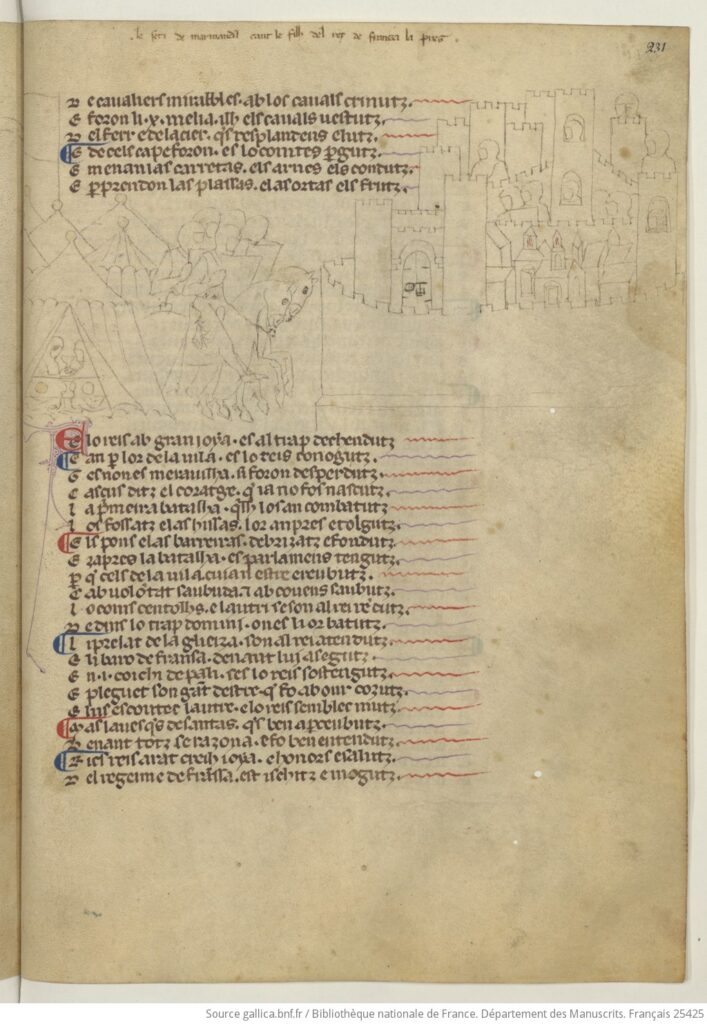 .le seti de marmanda cant le filh del rey de fransa la pres.
231
D e cavaliers mirables. ab los cavals crinutz.
E foron li .x. melia. ilh els cavals vestutz.
D el ferr e del acier. qs resplandens e lutz.
E de cels cape foron. es lo comtes pgutz.
E menan las carretas. els arnes els condutz.
E pprendon las plassas. e las ortas els frutz.
E lo reis ab gran ioya. es al trap dechendutz
C an p lor de la vila. es lo reis conogutz.
G es non es meravilha. si foron desperdutz.
C ascus ditz el coratge. q ia no fos nascutz.
l a pmeira batalha. los an combatutz
l os fossatz e las lissas. lor an pres e tolgutz.
E is pons e las barreiras. debrizatz e fondutz.
E apres la batalha. es parlamens tengutz.
p q cels de la vila. cuian estre ereubutz.
C ab volotat saubuda. ab covens saubutz.
l o coms centolhs. e lautri se son al rei redutz.
D edins lo trap domini. on es li or batutz.
l i prelat de la glieiza. son al rei atendutz.
E li baro de fransa. denant lui asegutz.
E n .i. coichi de pali. ses lo reis sostengutz.
E pleguet son gat destre. q fo ab aur cozutz.
E lus escoutec lautre. e lo reis sembles mutz.
M as lavesqs de santas. qs ben apceubutz.
D enant totz se razona. e fo ben entendutz.
R ics reis arat creih ioya. e honors e salutz.
D el regeime de frassa. est ichitz e mogutz.
Source gallica.bnf.fr / Bibliothèque nationale de France. Département des Manuscrits. Français 25425